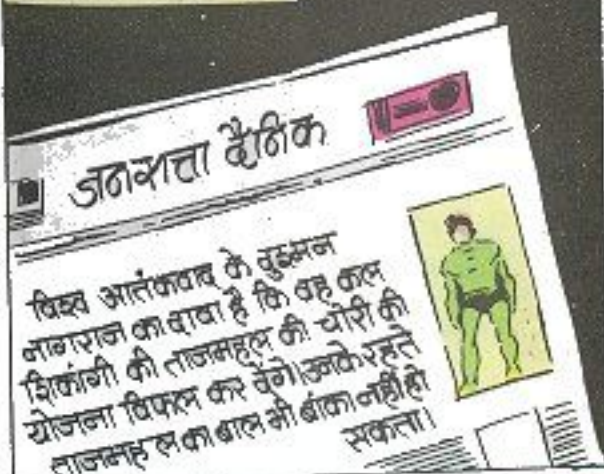 जनसत्ता दैनिक
विश्व आतंकवाद के दुश्मन
नागराज का दावा है कि वह कल
शिकांगी की ताजमहल की चोरी की
योजना विफल कर देंगे। उनके रहते
ताजमहल का बाल भी बांका नहीं हो
सकता।